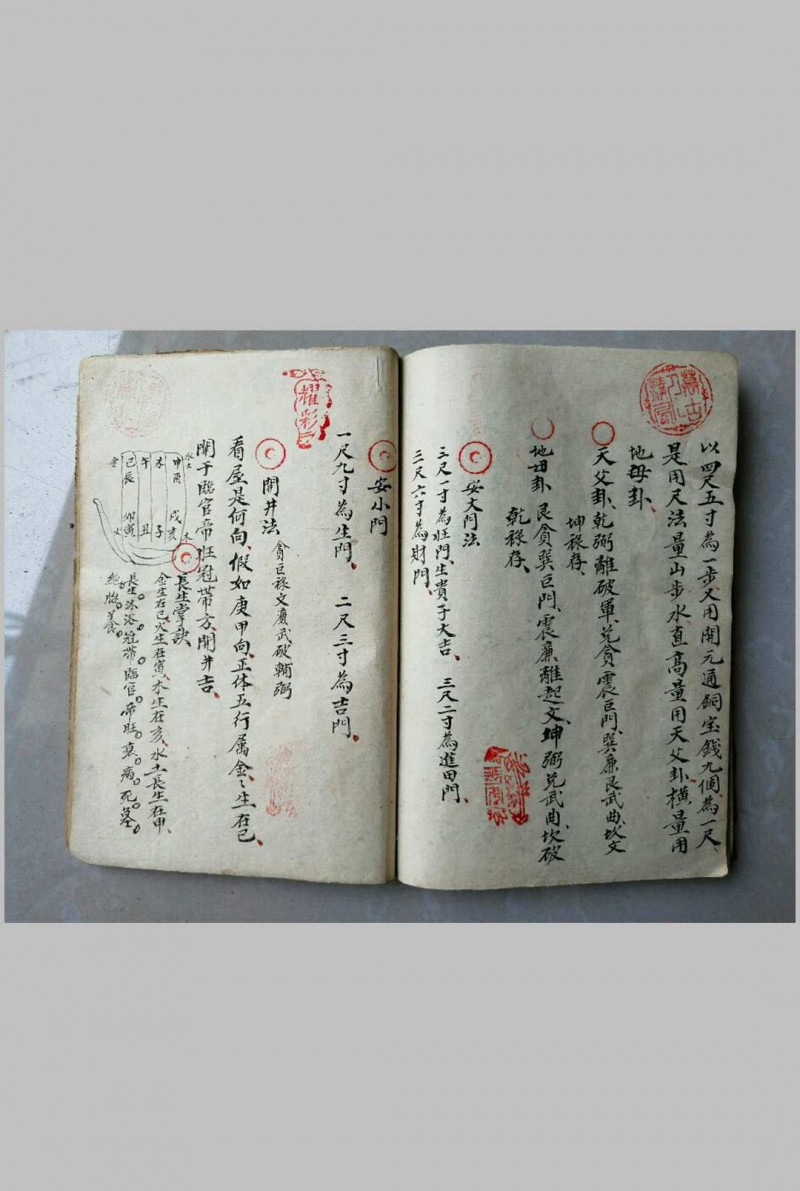 以四尺五寸為一步又用開元通銅宝錢九個為一尺、
是用尺法量山步水直高量用天父卦横量用
地母卦、
天父卦、乾弼離破軍、兑貪震巨門、巽廉艮武曲、坎文
坤祿存、
地母卦 艮貪巽巨門、震廉離起文、坤弼兑武曲、坎破
乾祿存、
安大門法
三尺一寸為旺門、生貴子大吉、 三尺二寸為進田門、
三尺六寸為財門、
安小門
一尺九寸為生門、 二尺三寸為吉門、
開井法 貪巨祿文廉武破輔弼
看屋是何向、假如庚甲向、正体五行属金、〻生在巳
開于臨官帝旺冠帶方、開井吉、
長生掌訣
金生在巳火生在寅、木生在亥、水土長生在申、
長生。沐浴。冠帶。臨官。帝旺。衰。病。死。墓。
絶。胎。養。
水土
申酉 戌亥 木
未 子
午 丑
巳辰 卯寅
金 火
耀彩